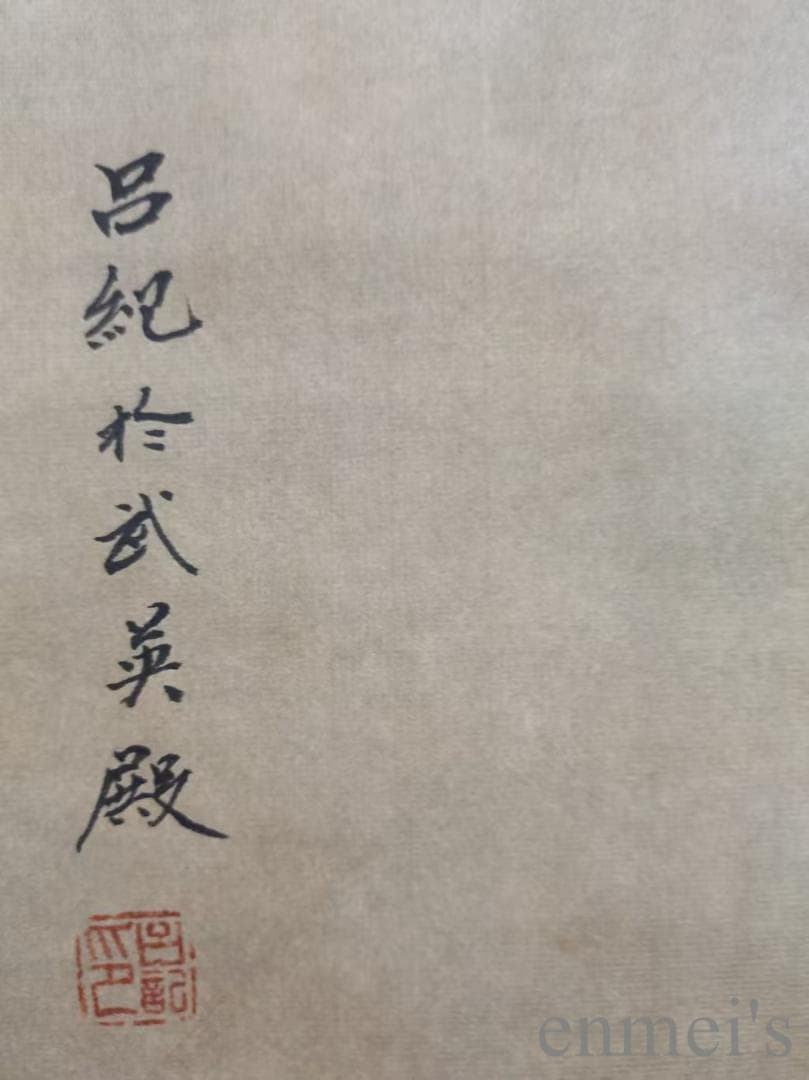 呂紀於武英殿
呂紀之印
enmei's